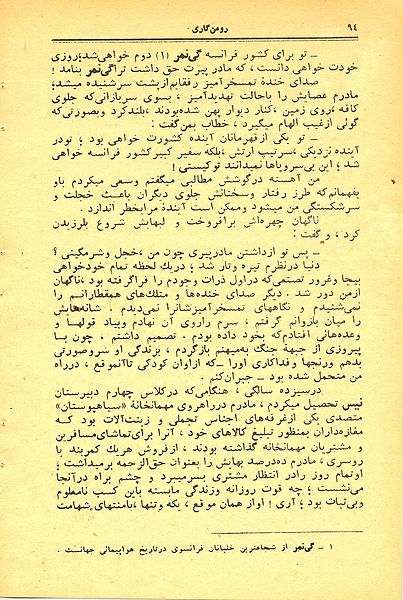 ۹۴ رومن‌گاری
– تو برای کشور فرانسه گی‌نمر (۱) دوم خواهی‌شد؛روزی
خودت خواهی دانست ، که مادر پیرت حق داشت تراگی‌نمر بنامد !
صدای خندهٔ تمسخرآمیز رفقایم‌ازپشت سرشنیده میشد؛
مادرم عصایش را باحالت تهدیدآمیز ، بسوی سربازانی‌که جلوی
کافه ،روی زمین ،کنار دیوار پهن شده‌بودند ،بلندکرد وبصورتی‌که
گوئی ازغیب الهام میگیرد ، خطاب بمن‌گفت :
– تو یکی ازقهرمانان آینده کشورت خواهی بود ؛ تودر
آینده نزدیکی ،سرتیپ ارتش ،بلکه سفیر کبیرکشور فرانسه خواهی
شد ؛ این بی‌سروپاها نمیدانند توکیستی !
من آهسته درگوشش مطالبی میگفتم وسعی میکردم باو
بفهمانم‌که طرز رفتار وسخنانش جلوی دیگران باعث خجلت و
سرشکستگی من میشود وممکن است آینده مرابخطر اندازد .
ناگهان چهره‌اش برافروخت و لبهایش شروع بلرزیدن
کرد ، و گفت :
– پس تو ازداشتن مادرپیری چون من ،خجل وشرمگینی ؟
دنیا درنظرم تیره وتار شد ؛ دریك لحظه تمام خودخواهی
بیجا وغرور تصنعی‌که دراول ذرات وجودم را فراگرفته بود ،ناگهان
ازمن دور شد . دیگر صدای خنده‌ها و متلك‌های همقطارانم را
نمی‌شنیدم و نگاههای تمسخرآمیزشانرا نمی‌دیدم . شانه‌هایش
را میان بازوانم گرفتم ، سرم راروی آن نهادم وبیاد قولهـا و
وعده‌هائی افتادم‌که بخود داده بودم . تصمیم داشتم ، چون بـا
پیروزی از جبههٔ جنگ به‌میهنم بازگردم ، بزندگی او سروصورتی
بدهم ورنجها وفداکاری اورا –که ازاوان کودکی تاآنموقع ، درراه
من متحمل شده بود – جبران‌کنم .
درسیزده سالگی ، هنگامی‌که درکلاس چهارم دبیرستان
نیس تحصیل میکردم ، مادرم درراهروی مهمانخانهٔ «سیاهپوستان»
متصدی یکی ازغرفه‌های اجناس تجملی و زینت‌آلات بود کـه
مغازه‌داران بمنظور تبلیغ کالاهای خود ، آنرا برای‌تماشای‌مسافرین
و مشتریان مهمانخانه گذاشته بودند ، ازفروش هریك کمربند یا
روسری ، مادرم ده‌درصد بهایش را بعنوان حق‌الزحمه برمیداشت ؛
اوتمام روز رادر انتظار مشتری بسرمیبرد و چشم براه درآنجا
می‌نشست ؛ چه قوت روزانه وزندگی مابسته باین کسب نامعلوم
وبی‌ثبات بود ؛ آری ! اواز همان موقع ، یکه وتنها ،بامنتهای شهامت
۱ – گی‌نمر از شجاعترین خلبانان فرانسوی درتاریخ هواپیمائی جهانست .